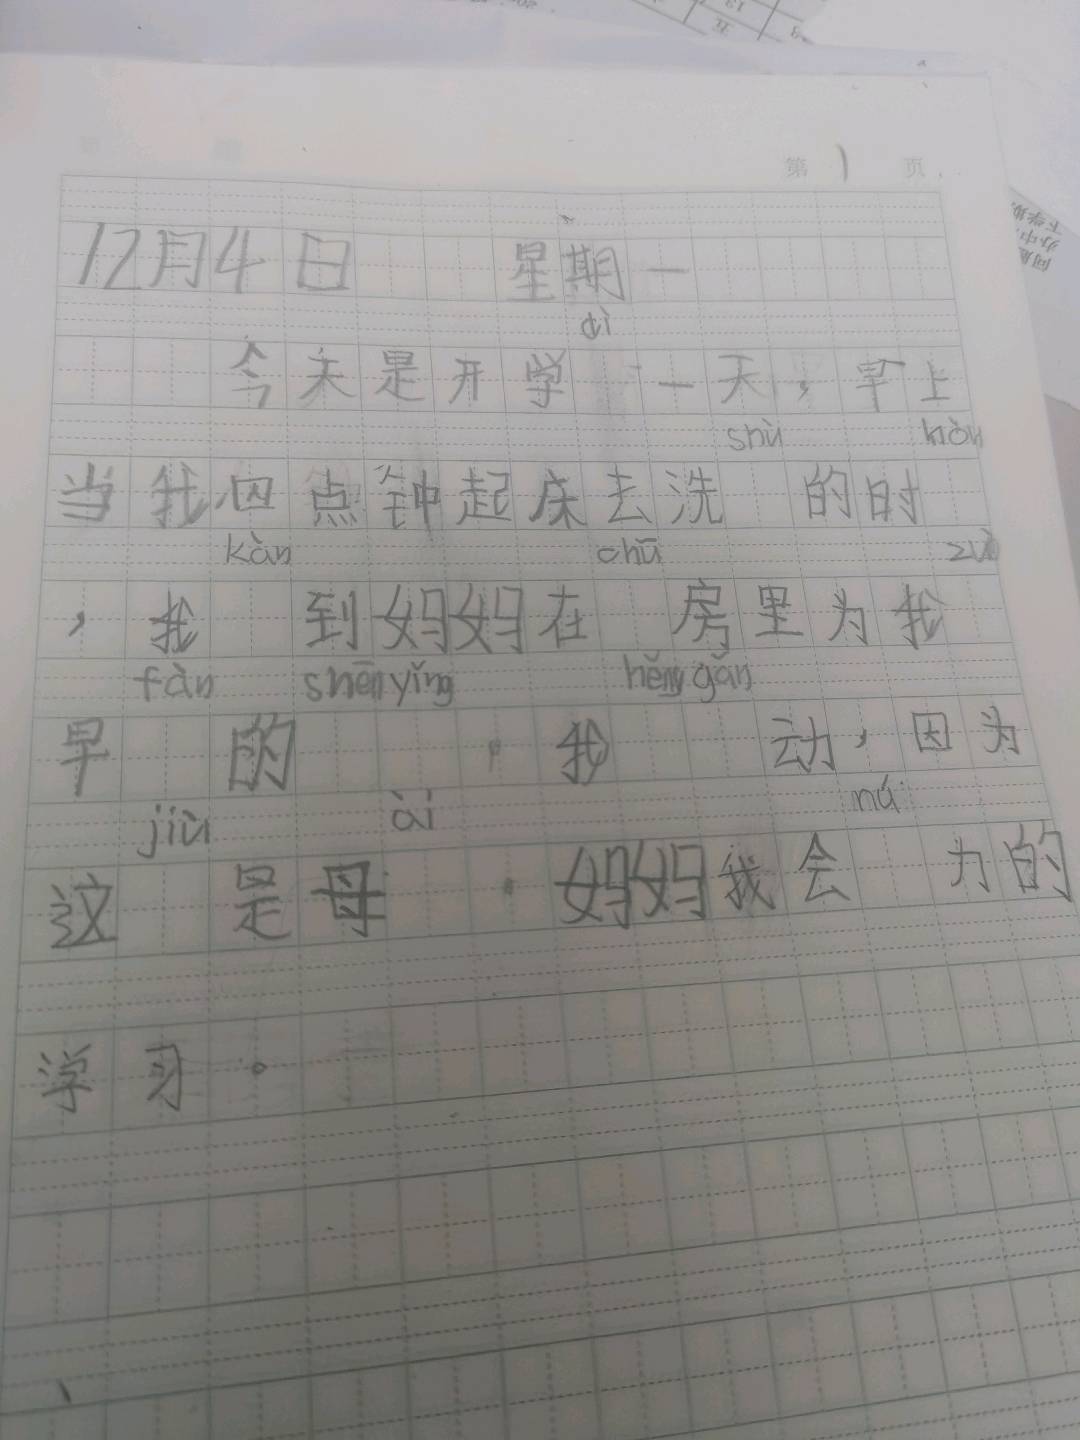 第1页
12月4日 星期一
dì
今天是开学 一天，早上
shù hòu
当我四点钟起床去洗 的时
kàn chū zuò
，我 到妈妈在 房里为我
fàn shēn yǐng hěng gǎn
早 的 。我 动，因为
jiù ài nǔ
这 是母 。妈妈我会 力的
学习。